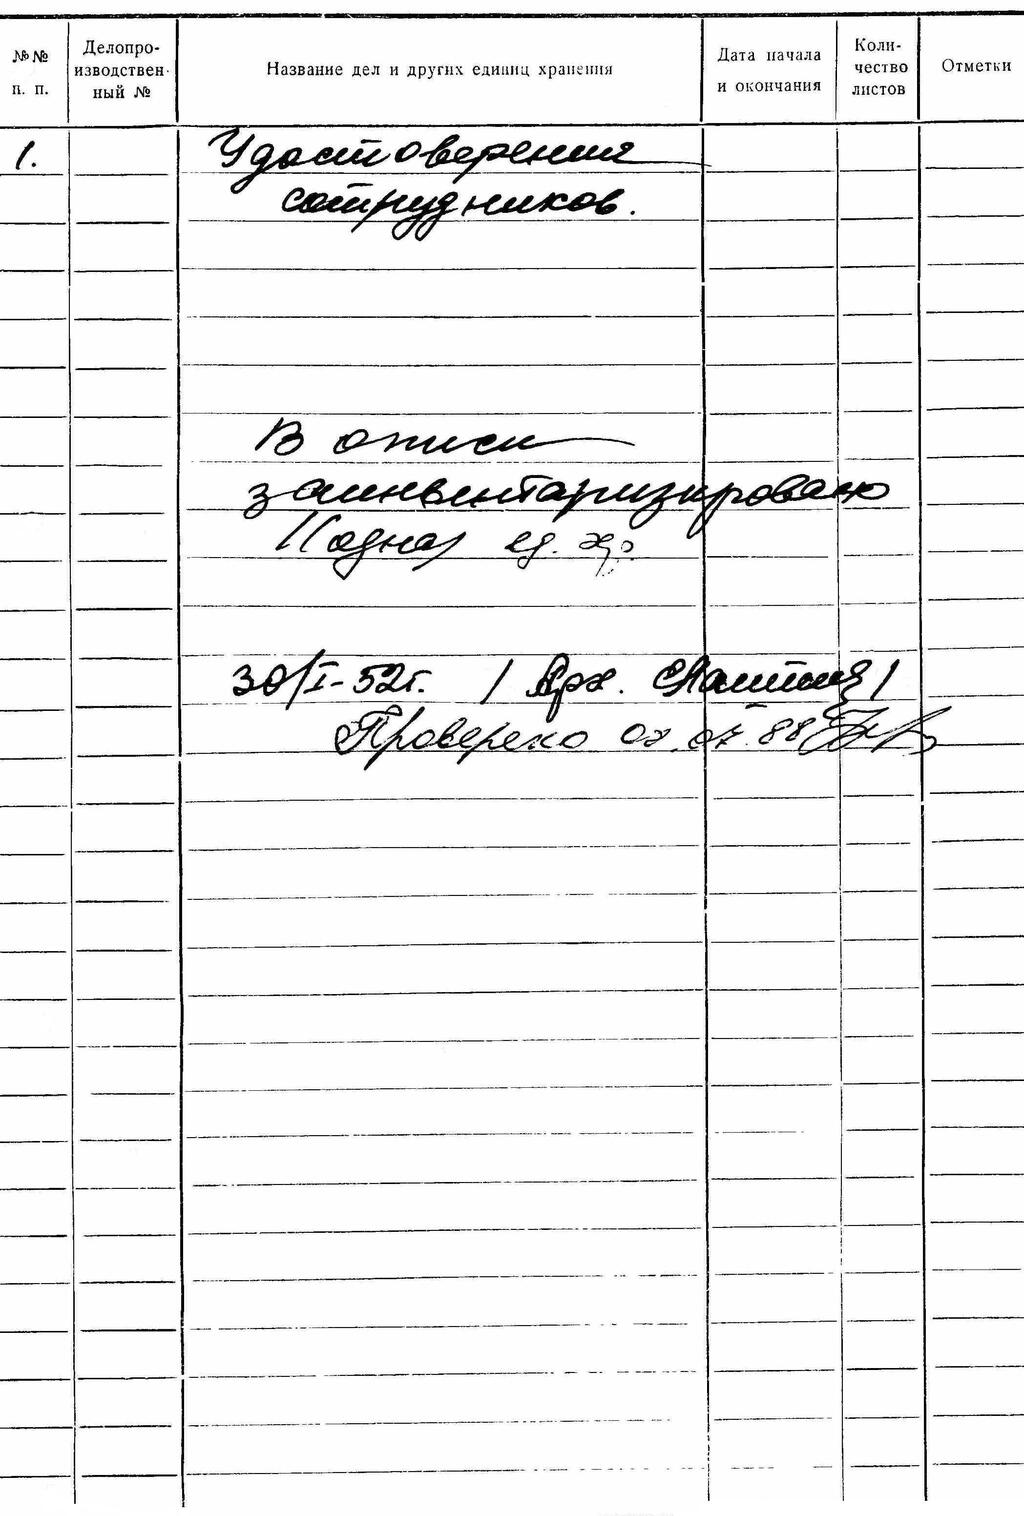 №№ п. п.
Делопро-
изводствен-
ный №
Название дел и других единиц хранения
Дата начала
и окончания
Коли-
чество
листов
Отметки
1.
Удостоверения
сотрудников.
В описи
заинвентаризировано
1 (одна) ед. хр.
30/I-52г. / Арх.
Проверено 07.88